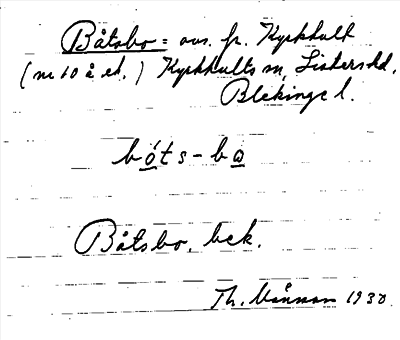 Båtsbo = avs. fr. Kyrkhult
(nr 10 å ek.) Kyrkhults sn, Listers hd.
Blekinge l.
bó̲ts-bo̲
Båtsbo, bek.
Th. Wånman 1930